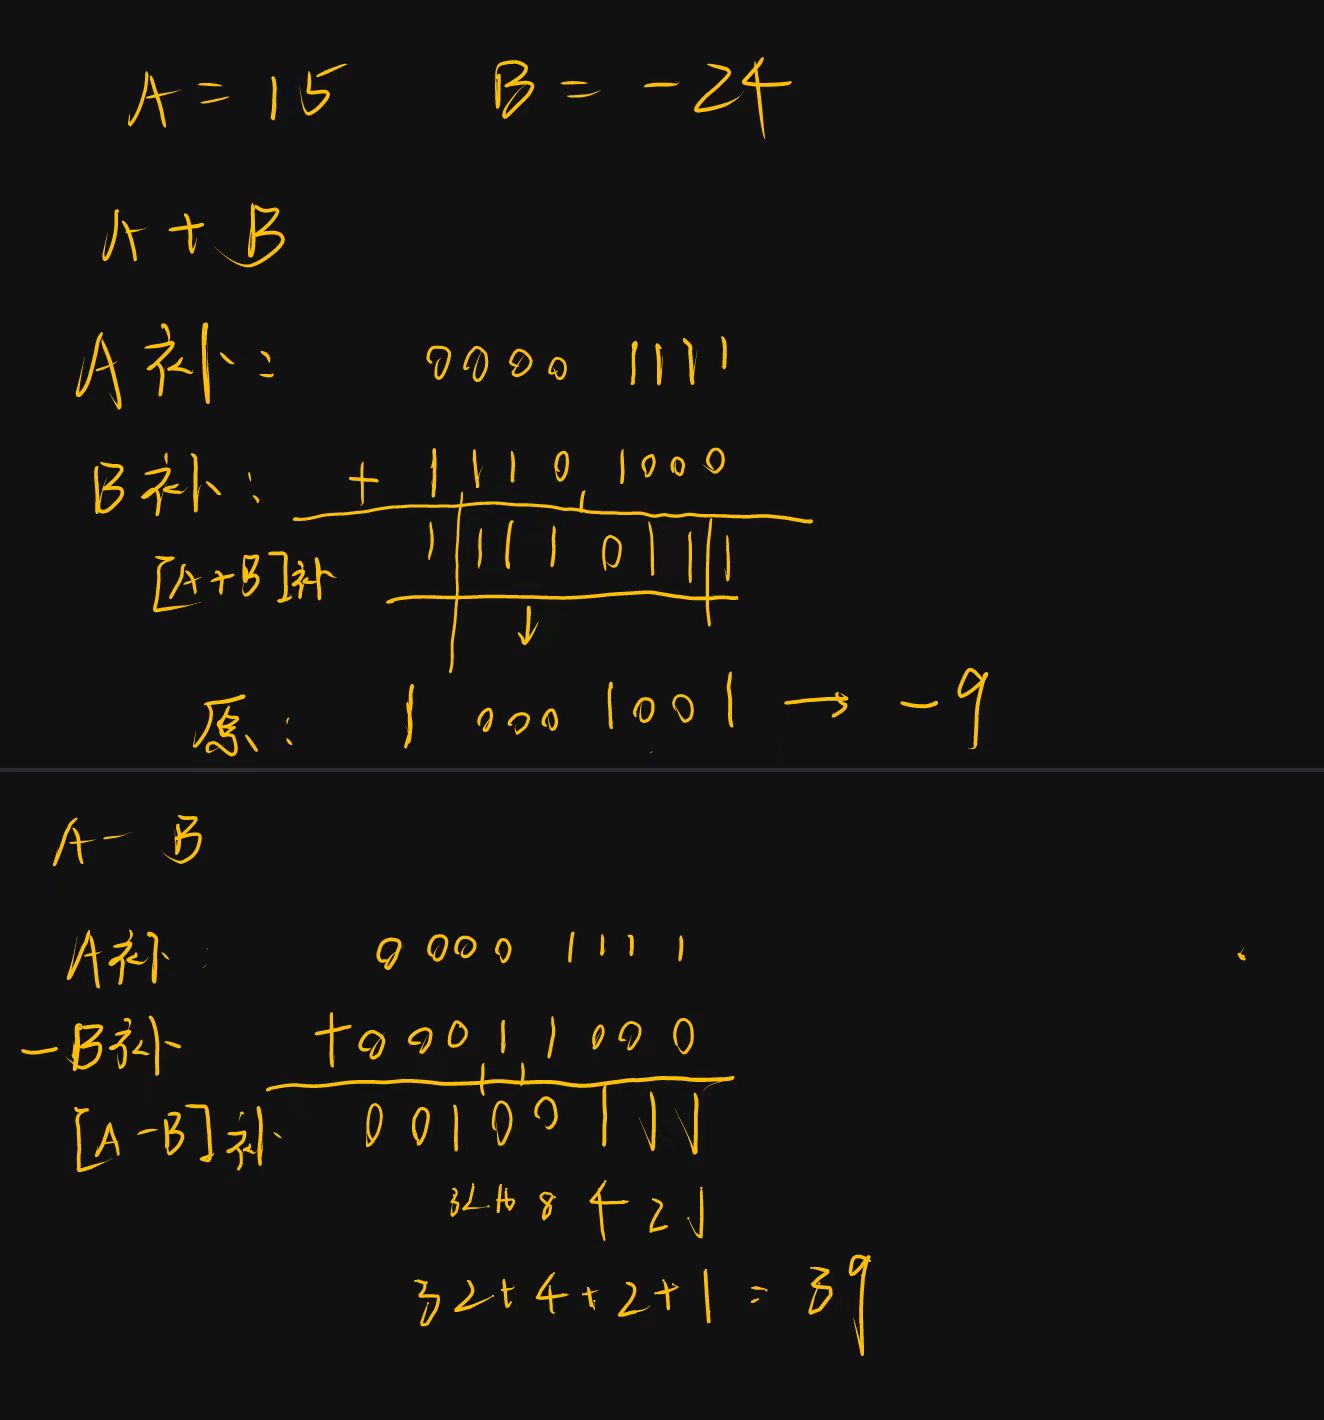 A = 15 B = -24
A + B
A补: 0000 1111
B补: + 1110 1000
[A+B]补 1 1110111
↓
原: 1 000 1001 → -9
A - B
A补: 0000 1111
-B补 +00011000
[A-B]补 00100111
32 16 8 4 2 1
32+4+2+1 = 39